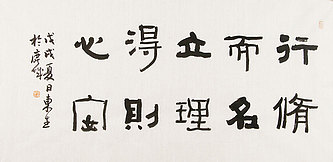 行脩
而名
立理
得則
心安
戊戌夏日東
於